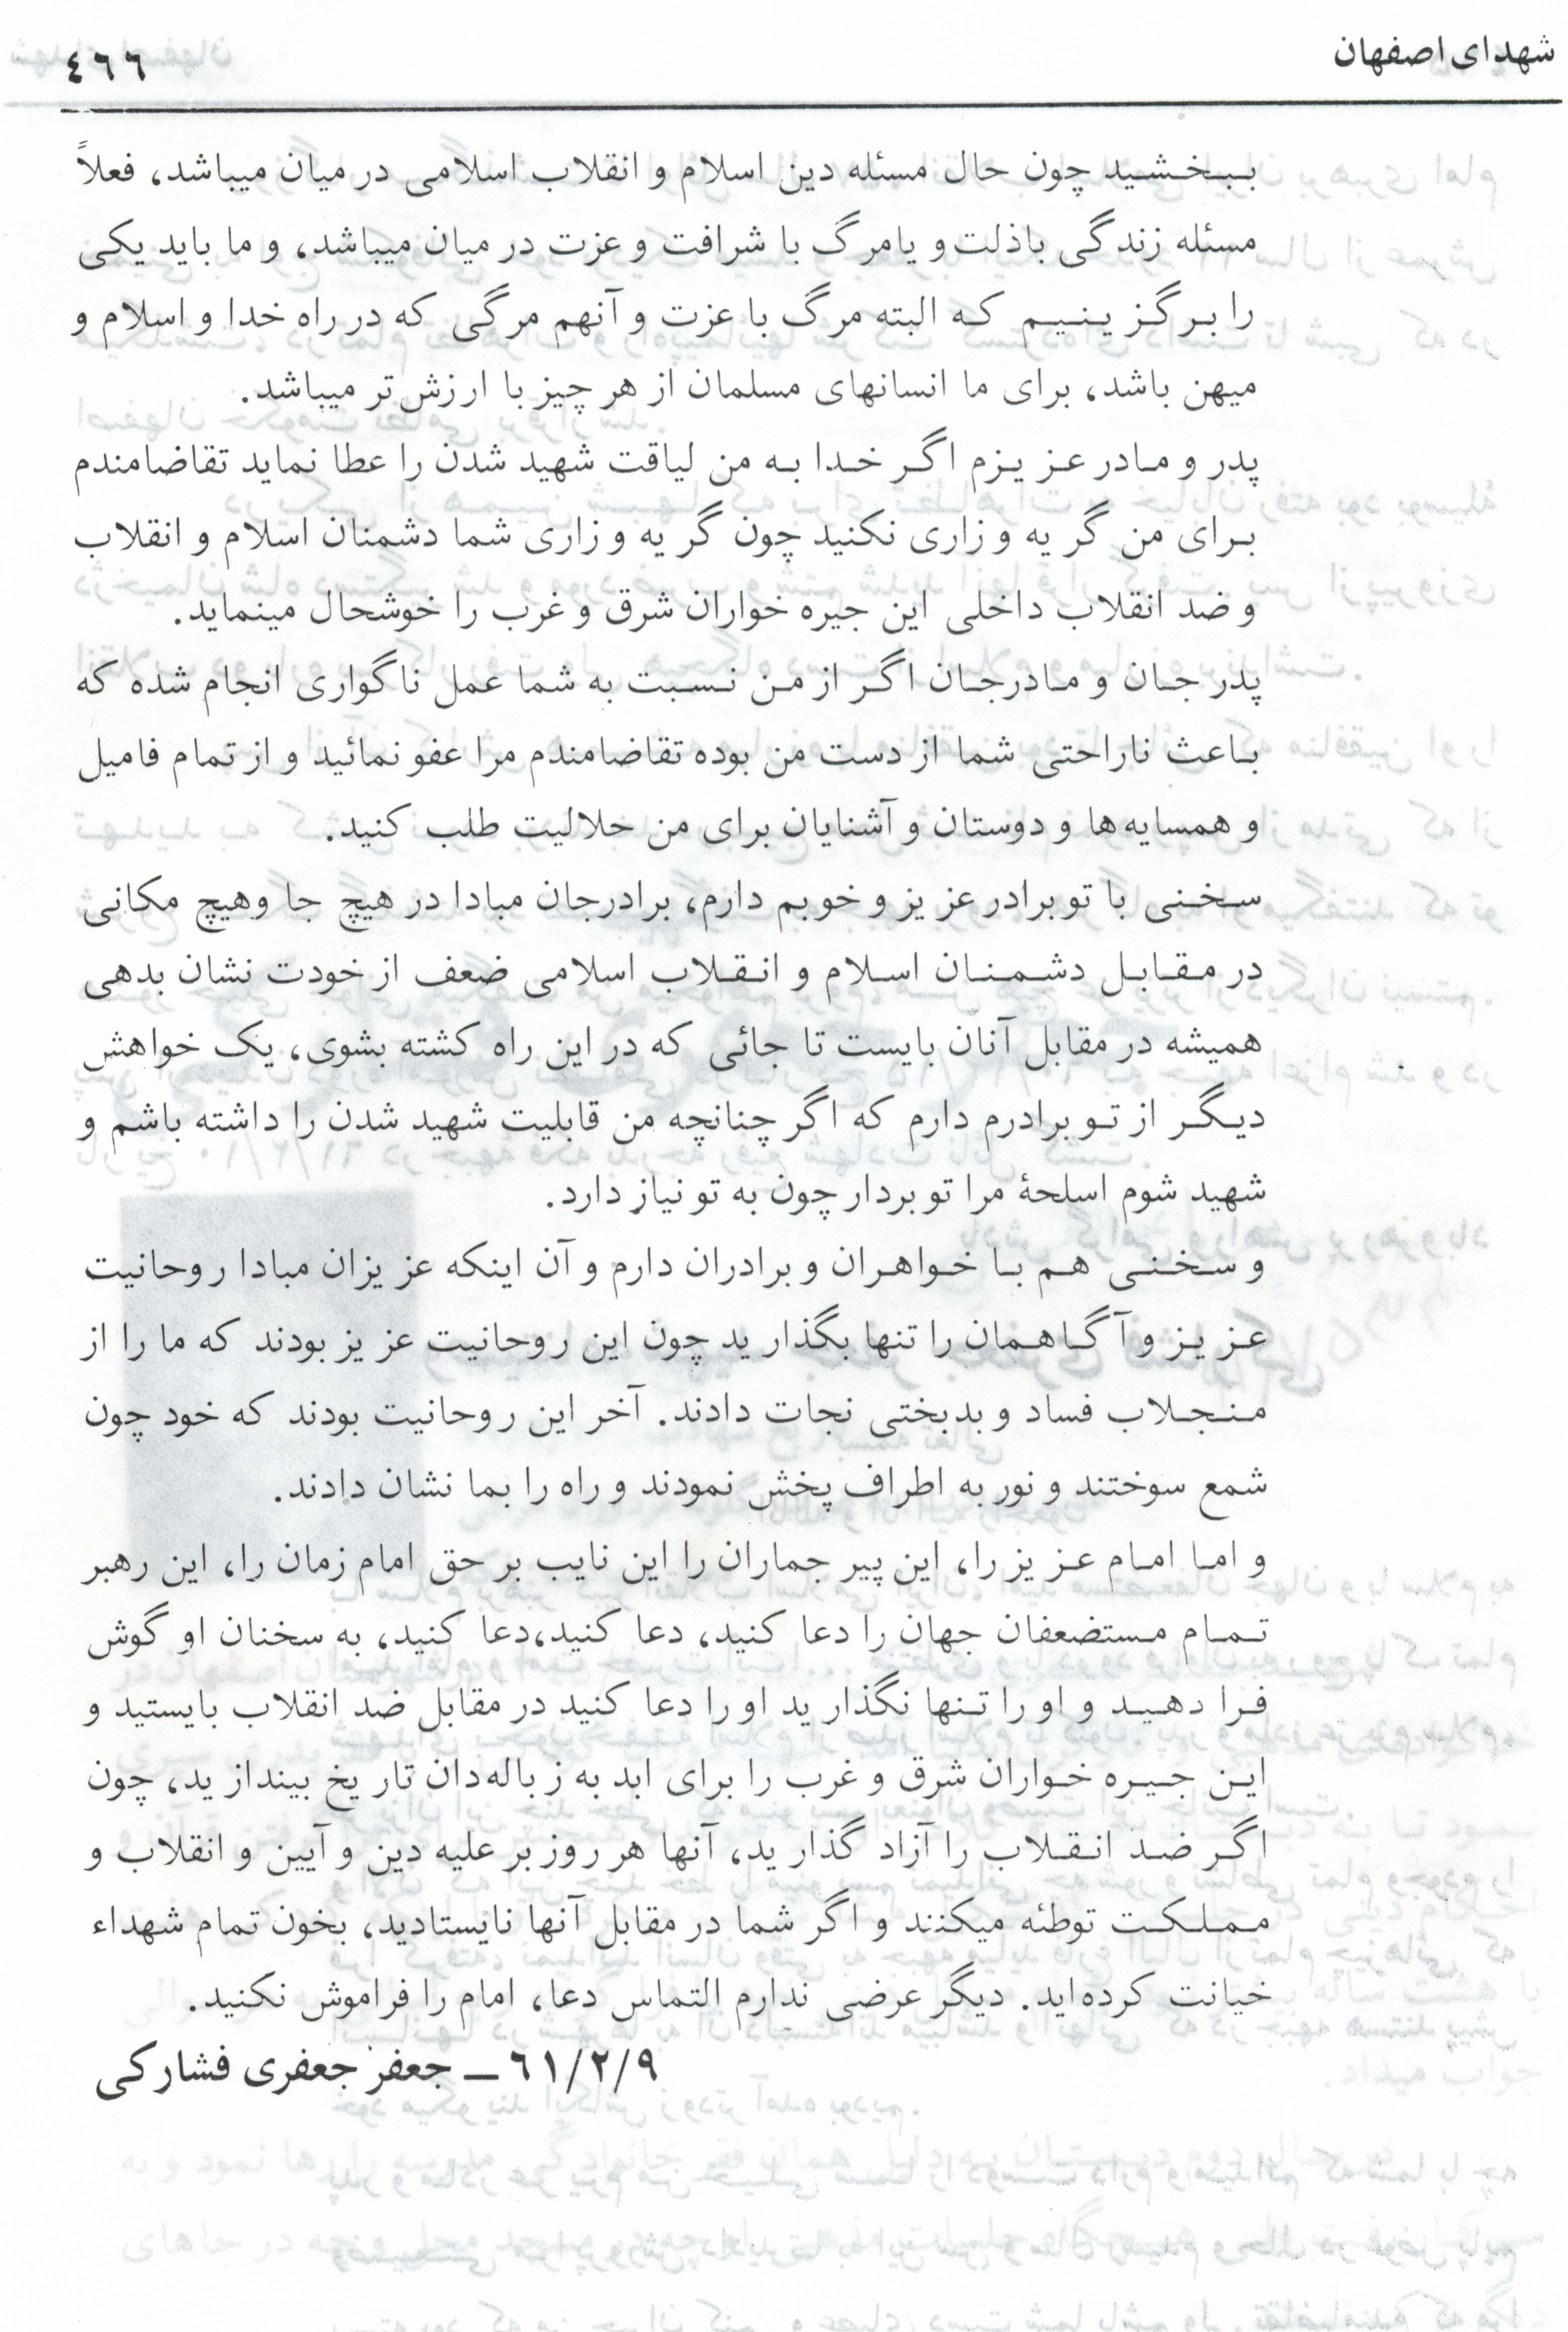 شهدای اصفهان
٤٦٦
ببخشید چون حال مسئله دین اسلام و انقلاب اسلامی در میان میباشد، فعلاً
مسئله زندگی باذلت و یامرگ با شرافت و عزت در میان میباشد، و ما باید یکی
را برگزینیم که البته مرگ با عزت و آنهم مرگی که در راه خدا و اسلام و
میهن باشد، برای ما انسانهای مسلمان از هر چیز با ارزش‌تر میباشد.
پدر و مادر عزیزم اگر خدا به من لیاقت شهید شدن را عطا نماید تقاضامندم
برای من گریه و زاری نکنید چون گریه و زاری شما دشمنان اسلام و انقلاب
و ضد انقلاب داخلی این جیره خواران شرق و غرب را خوشحال مینماید.
پدر جان و مادرجان اگر از من نسبت به شما عمل ناگواری انجام شده که
باعث ناراحتی شما از دست من بوده تقاضامندم مرا عفو نمائید و از تمام فامیل
و همسایه‌ها و دوستان و آشنایان برای من حلالیت طلب کنید.
سخنی با تو برادر عزیز و خوبم دارم، برادرجان مبادا در هیچ جا وهیچ مکانی
در مقابل دشمنان اسلام و انقلاب اسلامی ضعف از خودت نشان بدهی
همیشه در مقابل آنان بایست تا جائی که در این راه کشته بشوی، یک خواهش
دیگر از تو برادرم دارم که اگر چنانچه من قابلیت شهید شدن را داشته باشم و
شهید شوم اسلحهٔ مرا تو بردار چون به تو نیاز دارد.
و سخنی هم با خواهران و برادران دارم و آن اینکه عزیزان مبادا روحانیت
عزیز و آگاهمان را تنها بگذارید چون این روحانیت عزیز بودند که ما را از
منجلاب فساد و بدبختی نجات دادند. آخر این روحانیت بودند که خود چون
شمع سوختند و نور به اطراف پخش نمودند و راه را بما نشان دادند.
و اما امام عزیز را، این پیر جماران را این نایب بر حق امام زمان را، این رهبر
تمام مستضعفان جهان را دعا کنید، دعا کنید،دعا کنید، به سخنان او گوش
فرا دهید و او را تنها نگذارید او را دعا کنید در مقابل ضد انقلاب بایستید و
این جیره خواران شرق و غرب را برای ابد به زباله‌دان تاریخ بیندازید، چون
اگر ضد انقلاب را آزاد گذارید، آنها هر روز بر علیه دین و آیین و انقلاب و
مملکت توطئه میکنند و اگر شما در مقابل آنها نایستادید، بخون تمام شهداء
خیانت کرده‌اید. دیگر عرضی ندارم التماس دعا، امام را فراموش نکنید.
٦١/٢/٩ — جعفر جعفری فشارکی